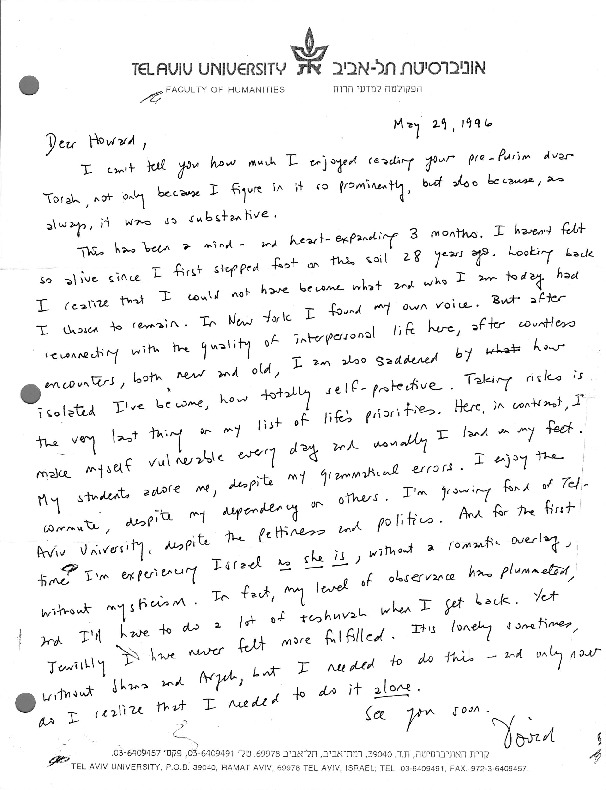 TEL AVIV UNIVERSITY אוניברסיטת תל-אביב
FACULTY OF HUMANITIES הפקולטה למדעי הרוח
May 29, 1996
Dear Howard,
I can't tell you how much I enjoyed reading your pre-Purim dvar
Torah, not only because I figure in it so prominently, but also because, as
always, it was so substantive.
This has been a mind- and heart-expanding 3 months. I haven't felt
so alive since I first stepped foot on this soil 28 years ago. Looking back
I realize that I could not have become what and who I am today had
I chosen to remain. In New York I found my own voice. But after
reconnecting with the quality of interpersonal life here, after countless
encounters, both new and old, I am also saddened by what how
isolated I've become, how totally self-protective. Taking risks is
the very last thing on my list of life's priorities. Here, in contrast, I
make myself vulnerable every day and usually I land on my feet.
My students adore me, despite my grammatical errors. I enjoy the
commute, despite my dependency on others. I'm growing fond of Tel-
Aviv University, despite the pettiness and politics. And for the first
time I'm experiencing Israel as she is, without a romantic overlay,
without mysticism. In fact, my level of observance has plummeted,
and I'll have to do a lot of teshuvah when I get back. Yet
Jewishly I have never felt more fulfilled. It is lonely sometimes,
without Shana and Aryeh, but I needed to do this - and only now
do I realize that I needed to do it alone.
See you soon.
David
קרית האוניברסיטה, ת.ד. 39040, רמת-אביב, תל-אביב 69978, טל' 03-6409491, פקס' 03-6409457.
TEL AVIV UNIVERSITY, P.O.B. 39040, RAMAT AVIV, 69978 TEL AVIV, ISRAEL; TEL. 03-6409491, FAX. 972-3-6409457